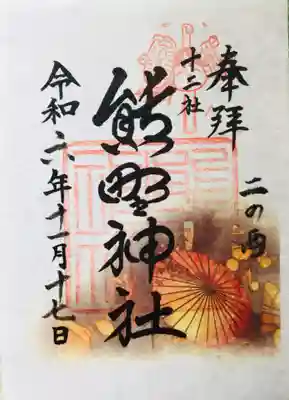 奉拝
二の酉
十二社
熊野神社
令和六年十一月十七日